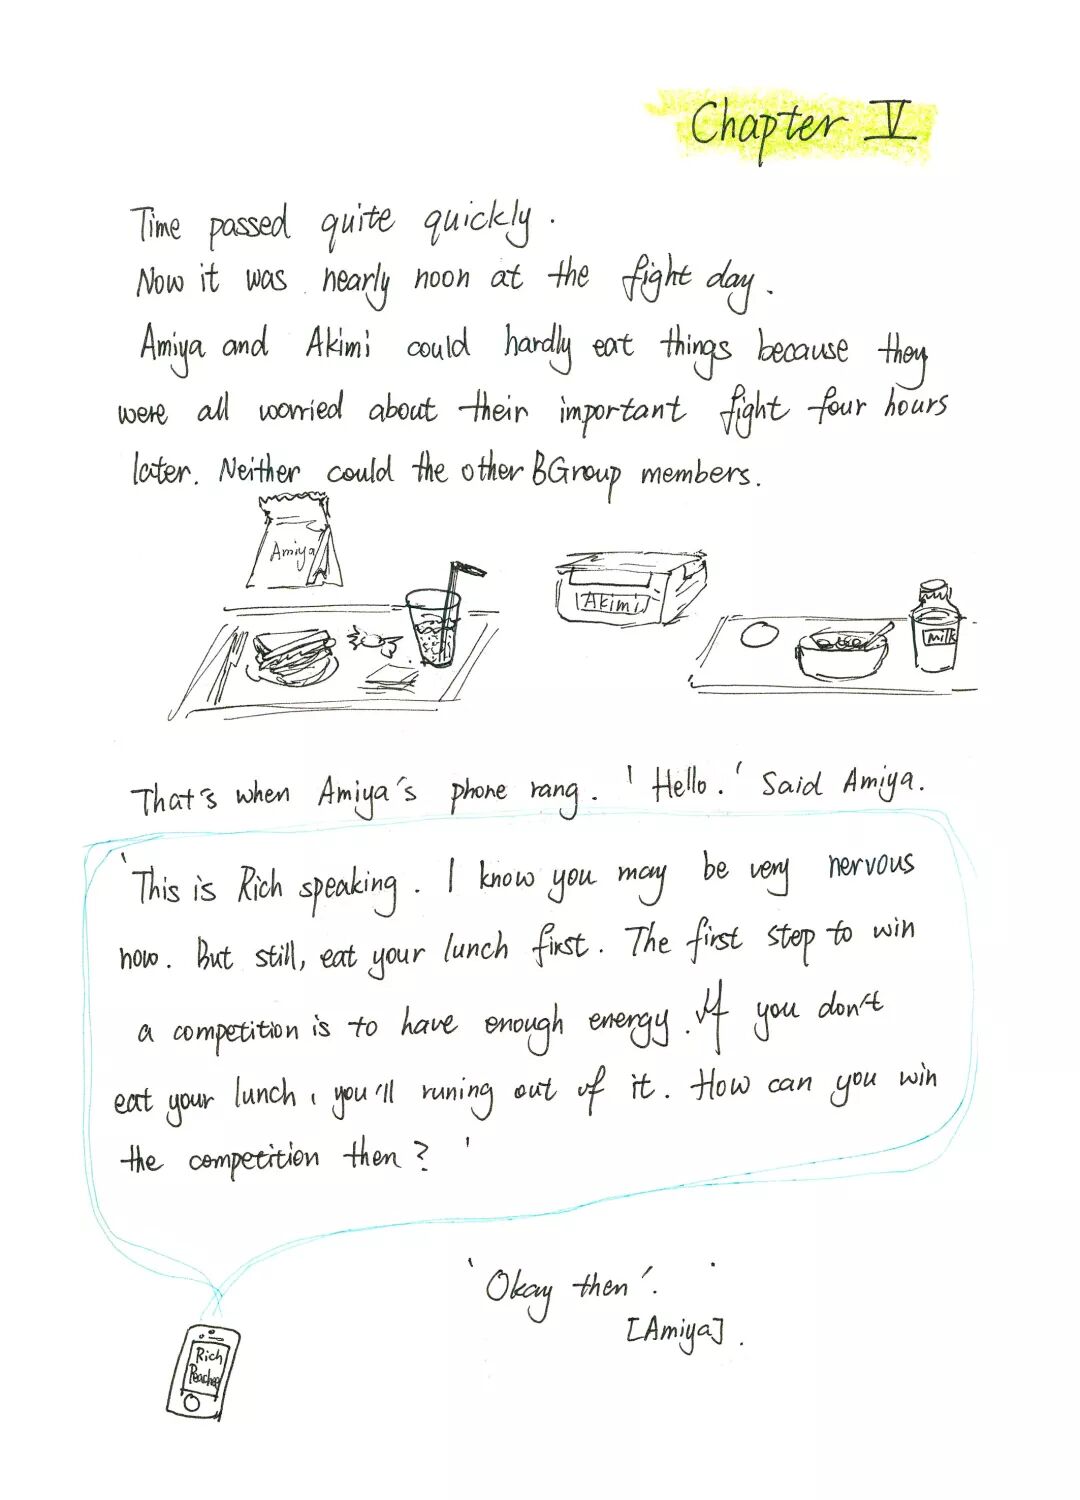 Chapter V
Time passed quite quickly.
Now it was nearly noon at the fight day.
Amiya and Akimi could hardly eat things because they
were all worried about their important fight four hours
later. Neither could the other BGroup members.
Amiya
Akimi
Milk
That's when Amiya's phone rang. 'Hello.' Said Amiya.
'This is Rich speaking. I know you may be very nervous
now. But still, eat your lunch first. The first step to win
a competition is to have enough energy. If you don't
eat your lunch, you'll runing out of it. How can you win
the competition then?'
'Okay then'.
[Amiya].
Rich